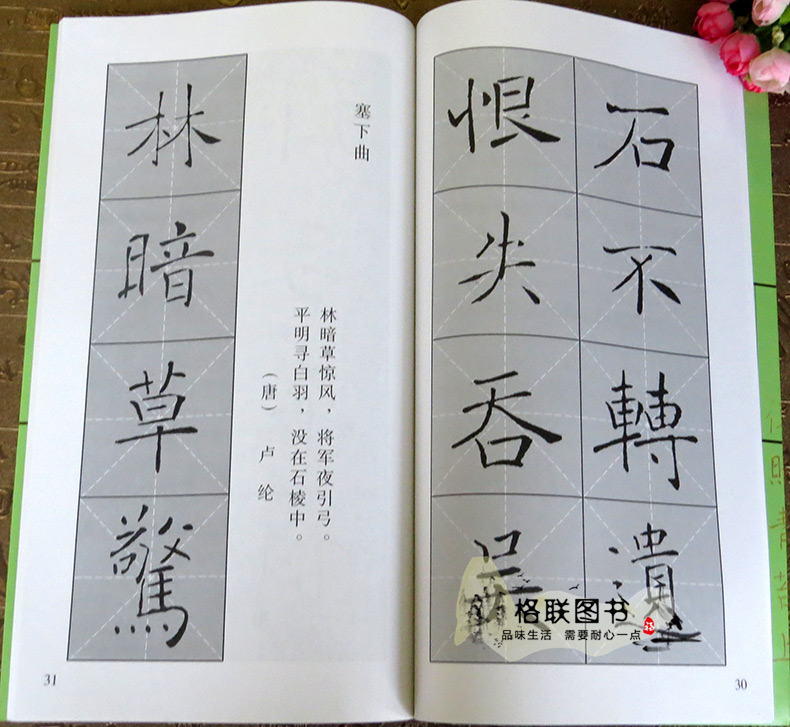 石不轉遺
恨失吞吳
30
塞下曲
林暗草惊风，将军夜引弓。
平明寻白羽，没在石棱中。
（唐） 卢 纶
林暗草驚
31
格联图书
品味生活 需要耐心一点